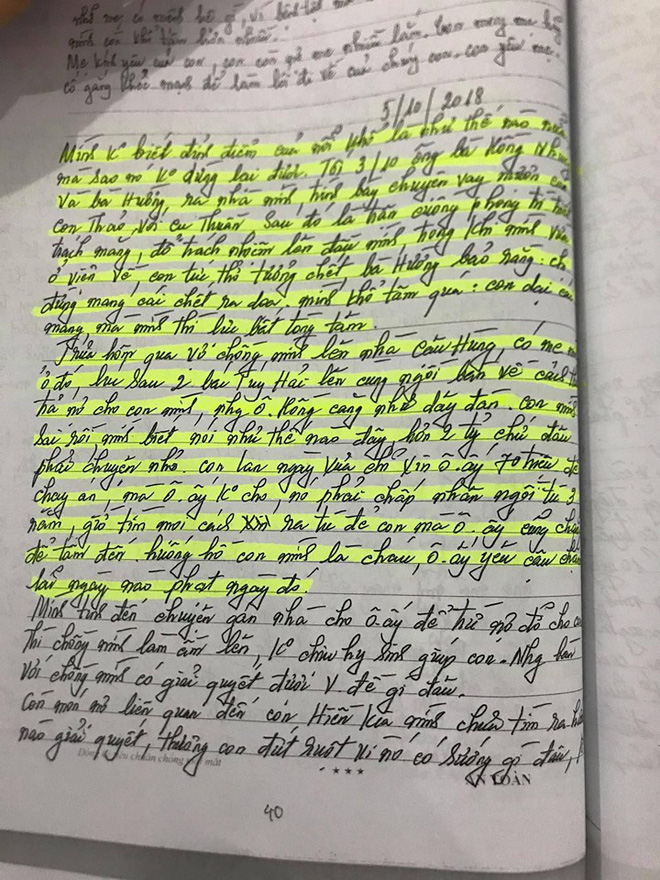 nhở mẹ có mệnh hệ gì, vì bệnh tật mẹ
mình còn khó khăn hơn nhiều.
Mẹ kính yêu của con, con còn nợ mẹ nhiều lắm. Con mong mẹ hãy
cố gắng khỏe mạnh để làm lối đi về cứ chúng con. con yêu mẹ.
5/10/2018
Mình k° biết đỉnh điểm của nỗi khổ là như thế nào nữa
mà sao nó k° dừng lại được. Tối 3/10 ông bà Hồng Nhung
và bà Hường, ra nhà mình, trình bày chuyện vay mượn
con Thảo, với cu Thuân sau đó là hắn cuồng phong
trách mắng, đổ trách nhiệm lên đầu mình, trong khi mình vừa
ở viện về, con tư thì tưởng chết, bà Hường bảo rằng:
đừng mang cái chết ra dọa, mình khổ tâm quá: con dại cái
mang, mà mình thì lưu bất tòng tâm
Trưa hôm qua vợ chồng mình lên nhà cậu Hùng, có mẹ
ở đó, lúc sau 2 bác Tuy Hải lên cùng ngồi bàn về cách
trả nợ cho con mình, nhg ô. Hồng càng như dây đàn. Con mình
sai rồi mình biết nói như thế nào đây, hơn 2 tỷ chứ đâu
phải chuyện nhỏ. con Lan ngày vừa chỉ xin ô. ấy 70 triệu để
chạy án, mà ô. ấy k° cho, nó phải chấp nhận ngồi tù 3
năm, giờ tìm mọi cách ra tù đẻ con mà ô. ấy cũng
để tâm đến. huống hồ con mình là cháu, ô. ấy yêu cầu
lãi ngày nào phạt ngày đó.
Mình tính đến chuyện gán nhà cho ô ấy để trừ nợ đỡ cho
thì chồng mình làm ầm lên, k° chịu hy sinh giúp con. Nhg bàn
với chồng mình có giải quyết được V đề gì đâu.
Còn món nợ liên quan đến con Hiền kia mình chưa tìm ra
nào giải quyết, thương con đứt ruột vì nó có sướng gì đâu,
★★★
AN TOÀN
40